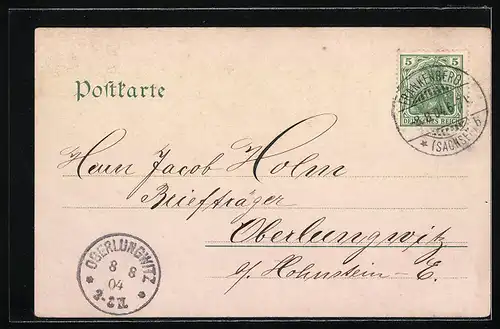 5 5
DEUTSCHES REICH
FRANKENBERG
* (SACHSEN) b
Postkarte
Herrn Jacob Holm
Briefträger
Oberlungwitz
b/ Hohnstein-E.
* OBERLUNGWITZ *
8 8
04